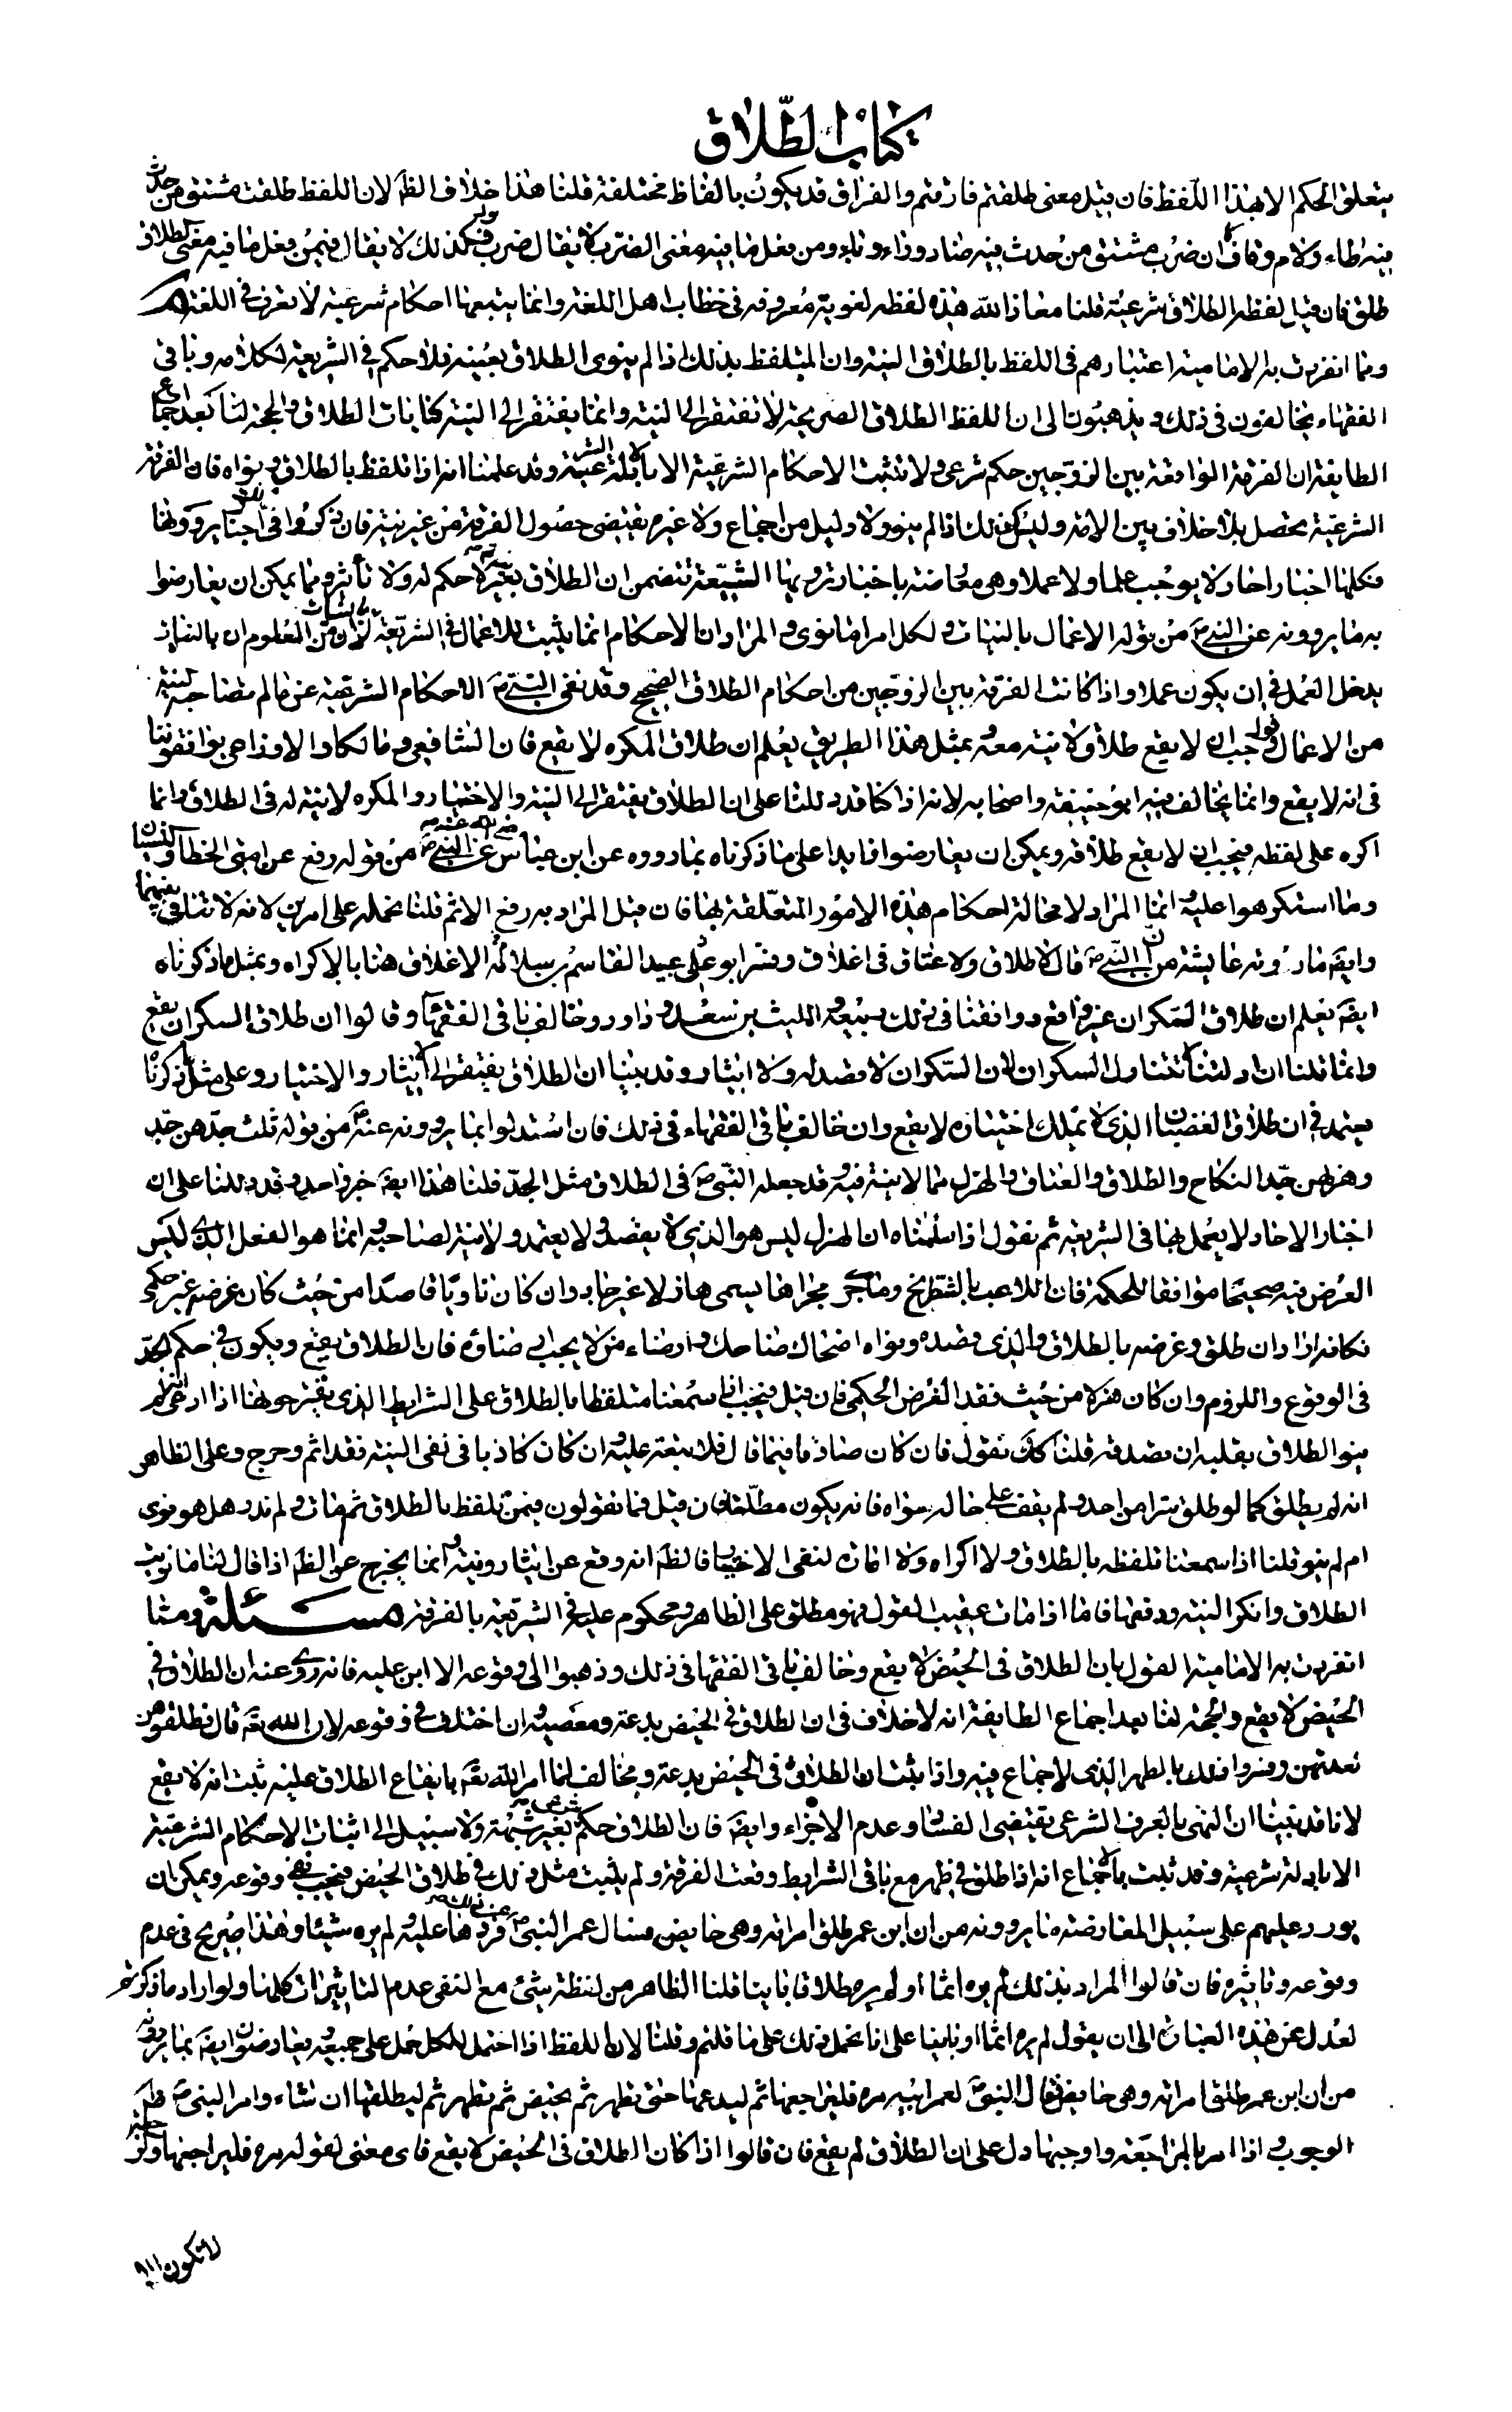 كتاب الطلاق
يتعلق الحكم الا بهذا اللفظ فان قيل معنى طلقتم فارقتم والفراق قد يكون بالفاظ مختلفة قلنا هذا خلاف الظ لان اللفظ طلقت مشتق من حدث
فيه طاء ولام وقاف كما ان ضرب مشتق من حدث فيه ضاد وراء وباء ومن فعل ما فيه معنى الضرب لا يقال ضرب فكذلك لا يقال فيمن فعل ما فيه معنى الطلاق
طلق فان قيل لفظه الطلاق شرعية قلنا معاذ الله هذه لفظه لغوية معروفه فى خطاب اهل اللغة وانما يتبعها احكام شرعية لا تعرف فى اللغة
ومما انفردت به الامامية اعتبارهم فى اللفظ بالطلاق النية وان المتلفظ بذلك اذا لم ينوى الطلاق بعينه فلا حكم فى الشريعة لكلامه وباقى
الفقهاء يخالفون فى ذلك ويذهبون الى ان للفظ الطلاق الصريحة لا تفتقر الى النية وانما يفتقر الى النية كنايات الطلاق والحجة لنا بعد اجماع
الطايفة ان الفرقة الواقعة بين الزوجين حكم شرعى ولا تثبت الاحكام الشرعية الا بالادلة الشرعية وقد علمنا انه اذا تلفظ بالطلاق ونواه فان الفرقة
الشرعية تحصل بلا خلاف بين الامة وليس كذلك اذا لم ينوه ولا دليل من اجماع ولا غيره يقتضى حصول الفرقة من غير نية فان ذكروا فى ذلك اخبار يروونها
فكلها اخبار احاد لا يوجب علما ولا عملا وهى معارضة باخبار ترويها الشيعة تتضمن ان الطلاق بغير نية لا حكم له ولا تأثير ومما يمكن ان يعارضوا
به ما يروونه عن النبى ص من قوله الاعمال بالنيات ولكل امر ما نوى والمراد ان الاحكام انما يثبت للاعمال فى الشريعة بالنيات لان من المعلوم ان بالنيات
يدخل العمل فى ان يكون عملا واذا كانت الفرقة بين الزوجين من احكام الطلاق الصحيح وقد نفى النبى ص الاحكام الشرعية عن ما لم مصاحبة لنية
من الاعمال وجب ان لا يقع طلاق لا نية معه بمثل هذا الطريق يعلم ان طلاق المكره لا يقع فان الشافعى ومالكا والاوزاعى يوافقوننا
فى انه لا يقع وانما يخالف فيه ابو حنيفة واصحابه لانه اذا كنا قد دللنا على ان الطلاق يفتقر الى النية والاختيار والمكره لا نية له فى الطلاق وانما
اكره على لفظه فيجب ان لا يقع طلاقه ويمكن ان يعارضوا زايدا على ما ذكرناه بما رووه عن ابن عباس رضى الله عنه عن النبى ص من قوله رفع عن امتى الخطا والنسيان
وما استكرهوا عليه انما المراد لا محالة احكام هذه الامور المتعلقة بها فان قيل المراد به رفع الاثم قلنا نحمله على امرين لانه لا تنافى بينهما
وايض ما روته عايشة من ان النبى ص قال لا طلاق ولا عتاق فى اغلاق وفسر ابو عبيد القاسم بن سلام الاغلاق هنا بالاكراه وبمثل ما ذكرناه
ايض يعلم ان طلاق السكران غير واقع ووافقنا فى ذلك ربيعة والليث بن سعد وداود وخالف باقى الفقهاء وقالوا ان طلاق السكران يقع
وانما قلنا ان ادلتنا تتناول السكران لان السكران لا قصد له ولا ايثار وقد بينا ان الطلاق يفتقر الى الايثار والاختيار وعلى مثل ما ذكرناه
يعتمد فى ان طلاق الغضبان الذى لا يملك اختياره لا يقع وان خالف باقى الفقهاء فى ذلك فان استدلوا بما يروونه عنه ع من قوله ثلث جدهن جد
وهزلهن جد النكاح والطلاق والعتاق والهزل مما لا نية فيه وقد جعله النبى ص فى الطلاق مثل الجد قلنا هذا ايض خبر واحد وقد دللنا على ان
اخبار الاحاد لا يعمل بها فى الشريعة ثم نقول اذا سلمناه ان الهزل ليس هو الذى لا يقصد ولا يعتمد ولا نية لصاحبه وانما هو الفعل الذى ليس
الغرض فيه صحيحا موافقا للحكمة فان اللاعب بالشطرنج وما جرى مجراها يسمى هازلا غير جاد وان كان ناويا قاصدا من حيث كان غرضه غير حكمى
فكانه اراد ان طلق وغرضه بالطلاق والذى قصده ونواه اضحاك ضاحك وارضاء من لا يجب ارضاؤه فان الطلاق يقع ويكون فى حكم الجد
فى الوقوع واللزوم وان كان هزلا من حيث فقد الغرض الحكمى فان قيل فيجب اذا سمعنا متلفظا بالطلاق على الشرايط الذى تقترحونها اذا ادعى انه لم
ينو الطلاق بقلبه ان نصدقه قلنا كك نقول فان كان صادقا فيما قال فلا تبعة عليه وان كان كاذبا فى نفى النية فقد اثم وحرج وعلى الظاهر
انه لم يطلق كما لو طلق سرا من احد ولم يقف على حاله سواه فانه يكون مطلقا فان قيل فما تقولون فيمن تلفظ بالطلاق ثم مات ولم ندر هل هو نوى
ام لم ينو قلنا اذا سمعنا تلفظه بالطلاق ولا اكراه ولا امارة لنفى الاختيار فالظ انه وقع عن ايثار ونية وانما يخرج عن الظ اذا قال لنا ما نويت
الطلاق وانكر النية ودفعها فاما اذا مات عقيب القول فهو مطلق على الظاهر ومحكوم عليه فى الشريعة بالفرقة مسئلة ومما
انفردت به الامامية القول بان الطلاق فى الحيض لا يقع وخالف باقى الفقهاء فى ذلك وذهبوا الى وقوعه الا ابن علية فانه روى عنه ان الطلاق فى
الحيض لا يقع والحجة لنا بعد اجماع الطايفة انه لا خلاف فى ان الطلاق فى الحيض بدعة ومعصية وان اختلف فى وقوعه لان الله تع قال فطلقوهن
لعدتهن وفسروا ذلك بالطهر الذى لا جماع فيه واذا ثبت ان الطلاق فى الحيض بدعة ومخالف لما امر الله تع بايقاع الطلاق عليه ثبت انه لا يقع
لانا قد بينا ان النهى بالعرف الشرعى يقتضى الفساد وعدم الاجزاء وايض فان الطلاق حكم شرعى بغير شبهة ولا سبيل الى اثبات الاحكام الشرعية
الا بادلة شرعية وقد ثبت بالاجماع انه اذا طلق فى طهر مع باقى الشرايط وقعت الفرقة ولم يثبت مثل ذلك فى طلاق الحيض فيجب نفى وقوعه ويمكن ان
يورد عليهم على سبيل المعارضة ما يروونه من ان ابن عمر طلق امراته وهى حايض فسال عمر النبى ص عن ذلك فردها عليه ولم يره شيئا وهذا صريح فى عدم
وقوعه وتاثيره فان قالوا المراد بذلك لم يره اثما او لم يره طلاقا باينا قلنا الظاهر من لفظة شئ مع النفى عدم التاثيرات كلها ولو اراد ما ذكرتم
لعدل عن هذه العبارة الى ان يقول لم يره اثما او باينا على انا نحمل ذلك على ما قلتم وقلنا لان اللفظ اذا احتمل للكل حمل على جميعه ويعارضون ايض بما يروونه
من ان ابن عمر طلق امراته وهى حايض فقال النبى ص لعمر ابيه مره فليراجعها ثم ليدعها حتى تطهر ثم تحيض ثم تطهر ثم ليطلقها ان شاء وامر النبى ص
الوجوب اذا امر بالمراجعة واوجبها دل على ان الطلاق لم يقع فان قالوا اذا كان الطلاق فى الحيض لا يقع فاى معنى لقوله مره فليراجعها
لا تكون